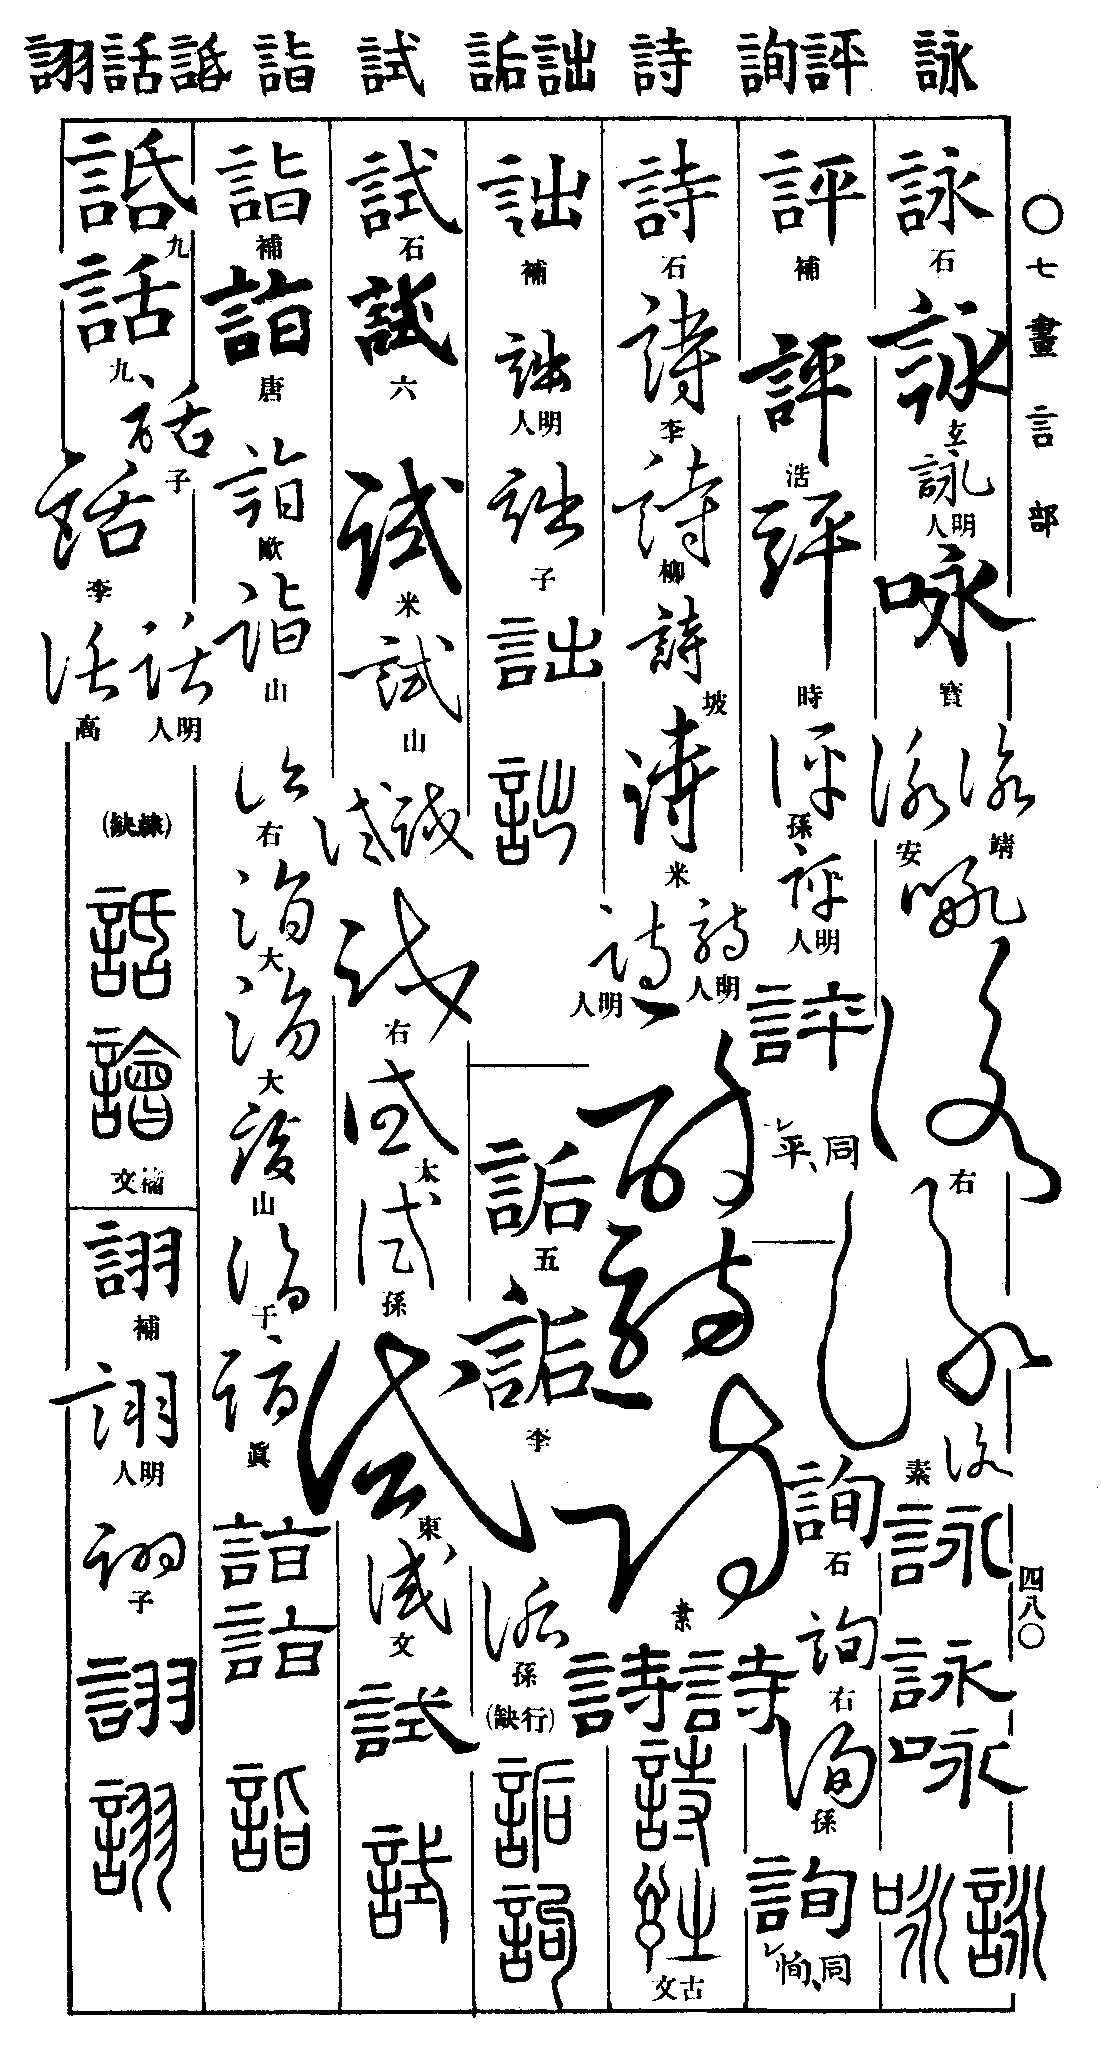 詠 評詢 詩 詘詬 試 詣 䛡話詡
〇七畫 言部
四八〇
詠 石
詠 玄
詠 明人
咏 寶
詠 靖
詠 安
咏
詠 右
詠
詠 素
詠
詠
咏
詠 咏
評 補
評 浩
評 時
評 孫
評 明人
評
同、平、
詢 石
詢 右
詢 孫
詢
同、恂、
詩 石
詩 李
詩 柳
詩 坡
詩 米
詩 明人
詩 明人
詩
詩
詩 素
詩 詩
詩
古文
詘 補
詘 明人
詘 子
詘
詘
詬 五
詬 李
詬 孫
(行缺)
詬
詢
試 石
試 六
試 米
試 山
試 試
試 右
試 太、
試 孫
試 東、
試 文
試
試
詣 補
詣 唐
詣 歐
詣 山
詣 右
詣 大
詣 大
詣 山
詣 子
詣 眞
詣
詣
詣
䛡 九
話 九
話 子
話 李
話 明人
話 高
(隸缺)
䛡
譮
籀文
詡 補
詡 明人
詡 子
詡
詡